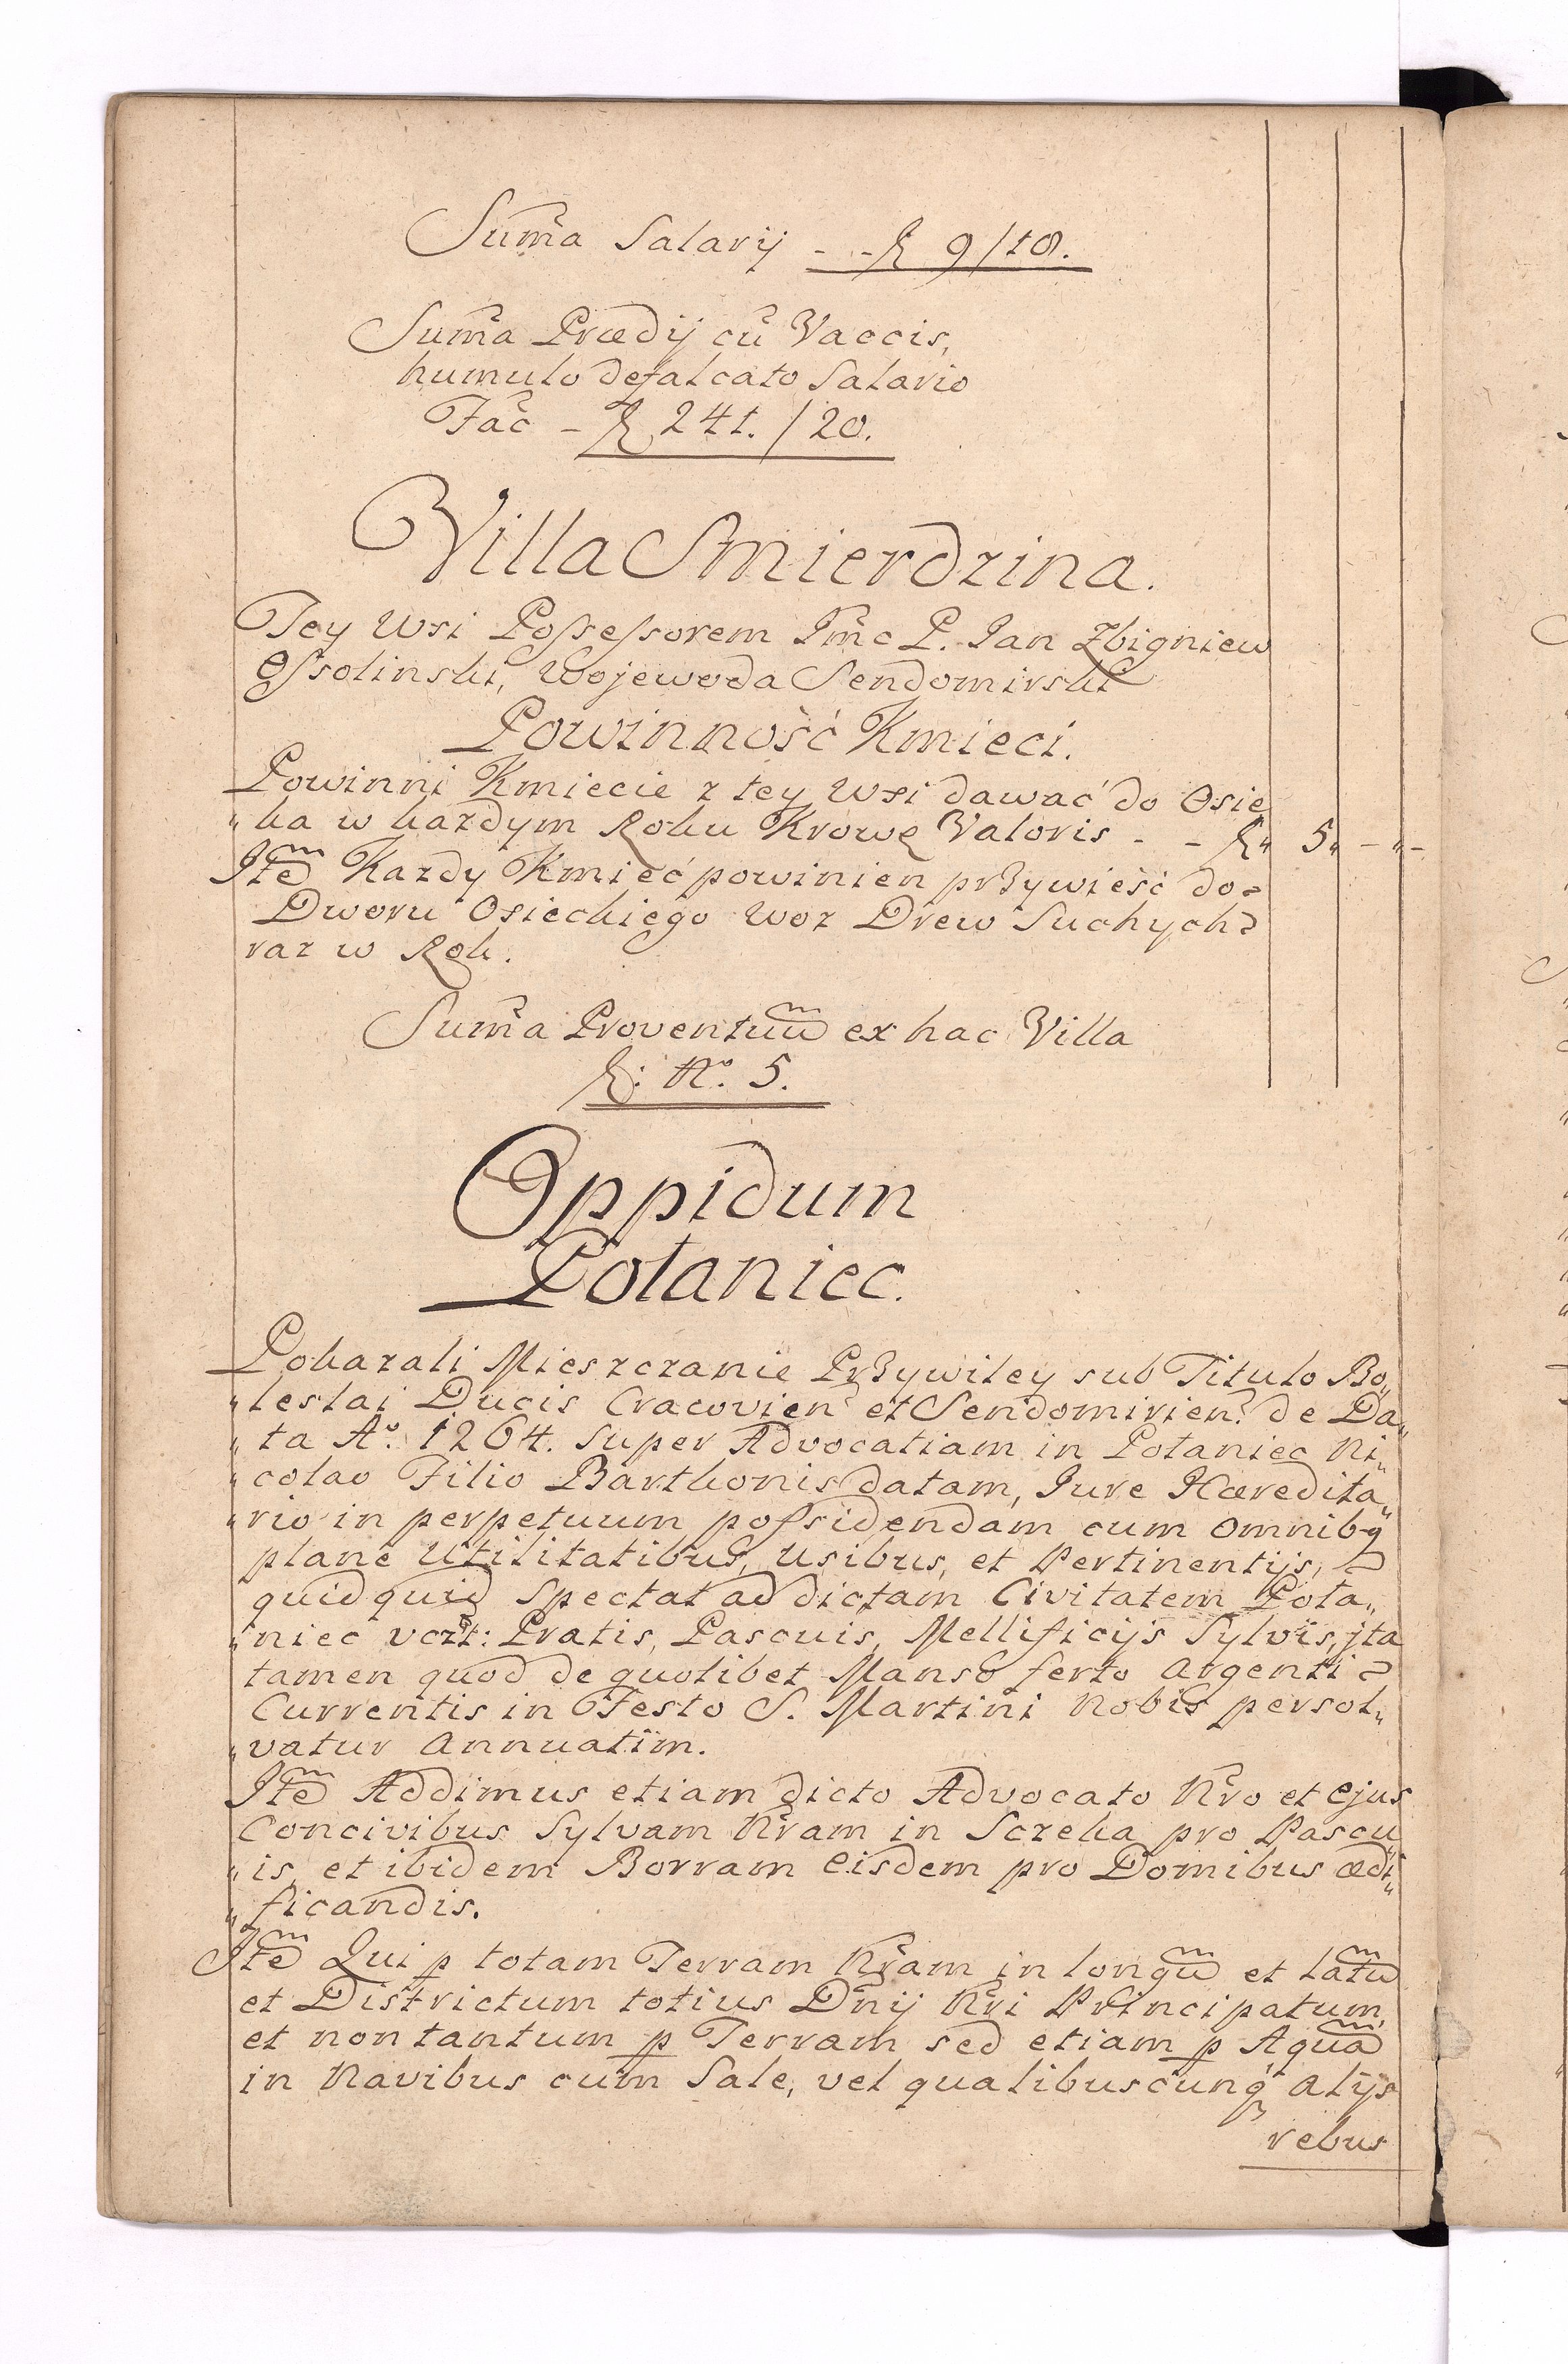 Sum̃a Salarij - - f 9/18.
Sum̃a Prædij cũ Vaccis,
humulo defalcato Salario
Fac̃ - f 241. / 20.
Villa Smierdzina.
Tey Wsi Possessorem Jm̃c P. Jan Zbigniew
Ossolinski, Wojewoda Sendomirski
Powinność Kmieci.
Powinni Kmiecie z tey Wsi dawać do Osie
„ka w kazdym Roku Krowę Valoris - - f„ 5„ - „ -
Jtẽ Kazdy Kmieć powinien przywieść do=
Dworu Osieckiego Woz Drew Suchych=
raz w Rok.
Sum̃a Proventuũ ex hac Villa
f: No. 5.
Oppidum
Połaniec.
Pokazali Mieszczanie Przywiley sub Titulo Bo„
„leslai Ducis Cracovieñ et Sendomirieñ. de Da„
„ta Ao. 1264. Super Advocatiam in Połaniec Ni„
„colao Filio Barthonis datam, Jure Hæredita„
„rio in perpetuum possidendam cum omnibq
plane Utilitatibus, usibus, et Pertinentijs,=
quidquid Spectat ad dictam Civitatem Poła„
„niec vczt: Pratis, Pascuis, Mellificijs Sylvis, jta
tamen quod de quolibet Manso ferto Argenti=
Currentis in Festo S. Martini Nobis persol„
„vatur Annuatim.
Jtẽ Addimus etiam dicto Advocato Nr̃o et ejus
Concivibus Sylvam Nr̃am in Szczeka pro Pascu
„is, et ibidem Borram eisdem pro Domibus ædi„
„ficandis.
Jtẽ Qui p totam Terram Nr̃am in longũ et latũ
et Districtum totius Dñij Nr̃i Principatum,
et non tantum p Terram sed etiam p Aquã
in Navibus cum Sale, vel qualibuscunq̃ alijs
rebus